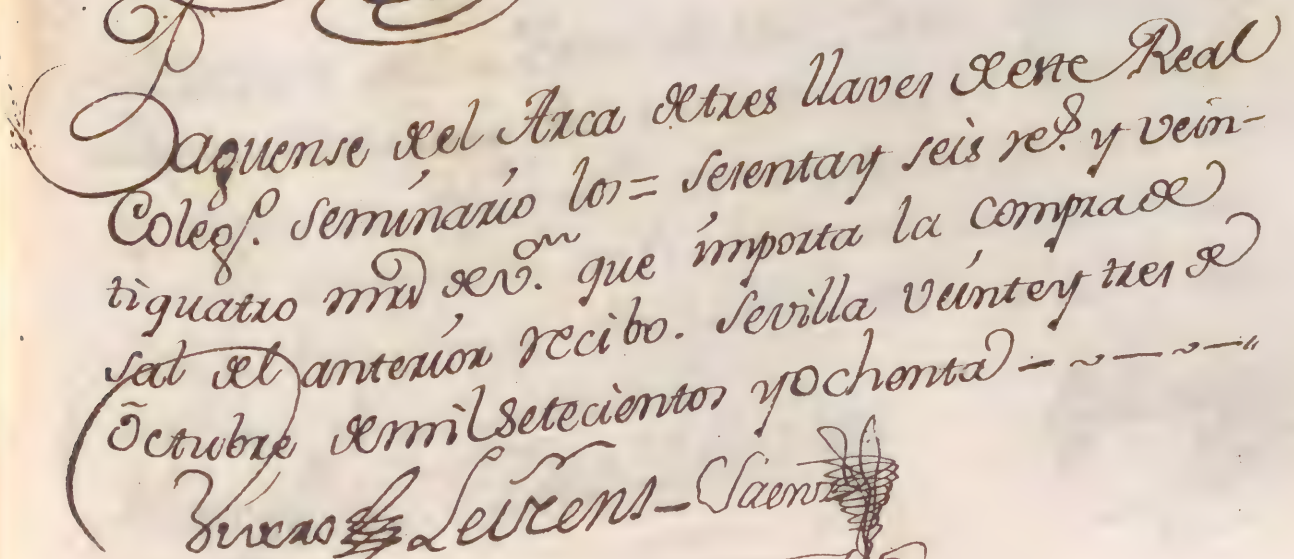 Saquense del Arca de tres llaves de este Real
Coleg.º Seminario los = sesenta y seis rs. y vein-
tiquatro mrs de vn. que importa la compra de
sal del anterior recibo. Sevilla veinte y tres de
Octubre de mil setecientos y ochenta
Vivero Leirens - Saenz